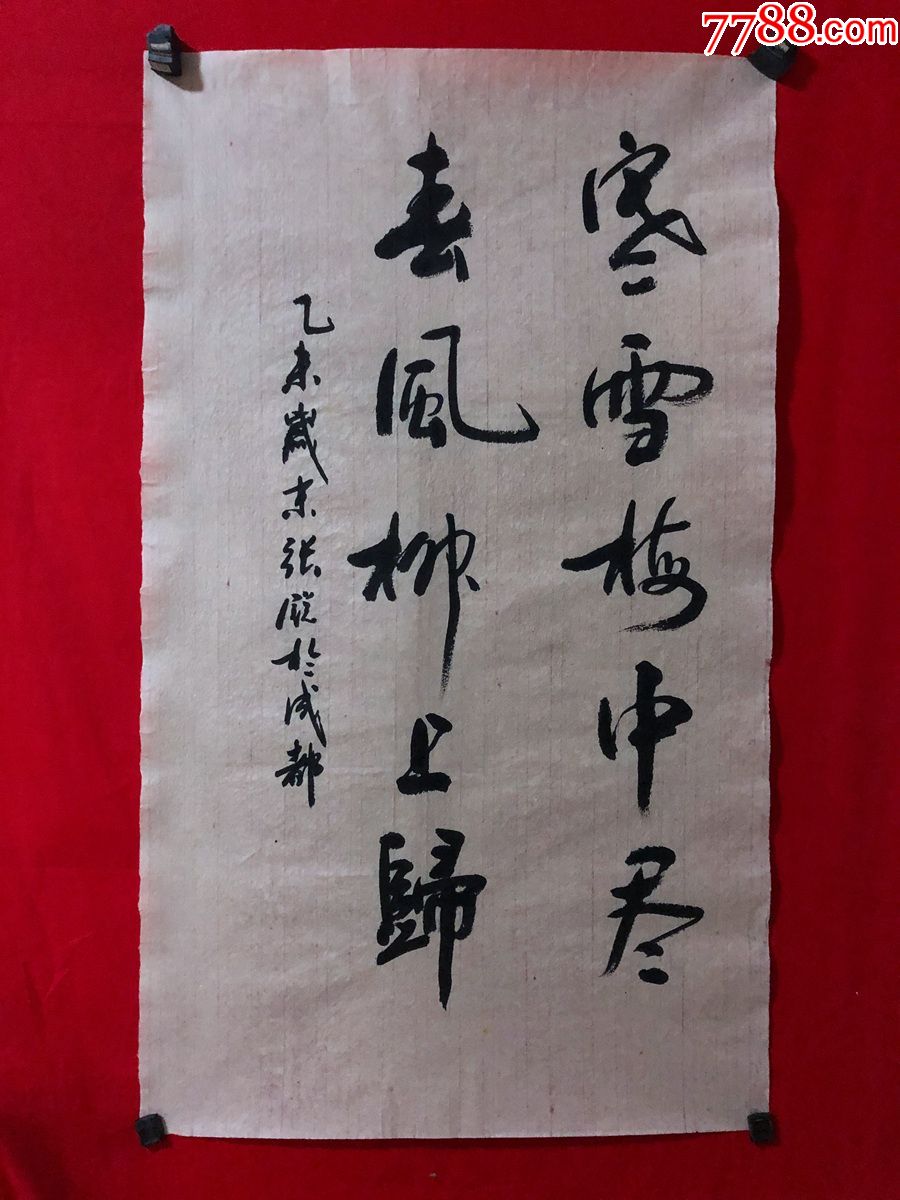 7788.com
寒雪梅中尽
春風柳上歸
乙未歲末张於成都